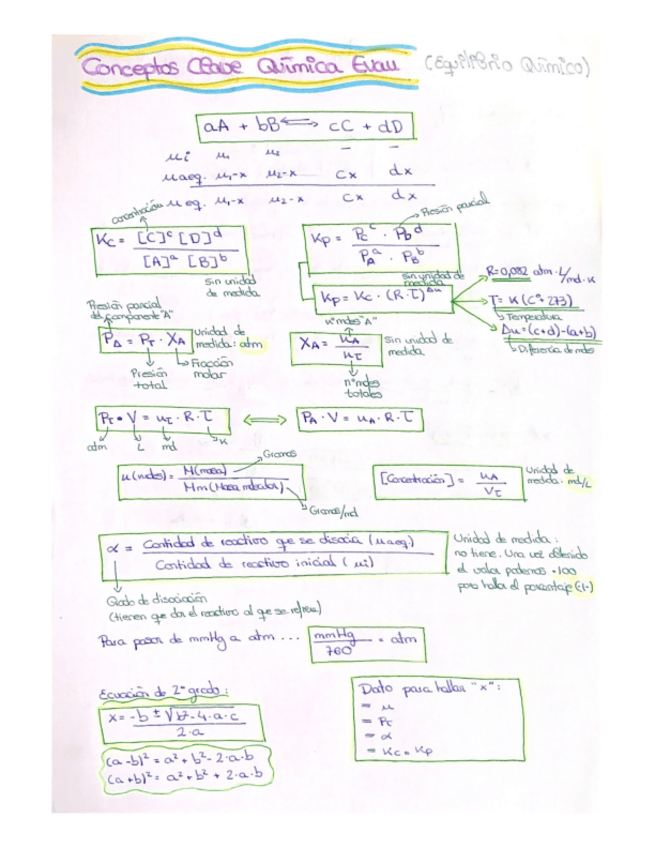 Conceptos Clave Química Evau (Equilibrio Químico)
aA + bB ⇌ cC + dD
ni n₁ n₂ – –
naeq. n₁-x n₂-x cx dx
n eq. n₁-x n₂-x cx dx
concentración
Presión parcial
Kc = [C]ᶜ [D]ᵈ / [A]ᵃ [B]ᵇ
sin unidad
de medida
Kp = Pcᶜ · PDᵈ / PAᵃ · PBᵇ
sin unidad de
medida
Kp = Kc · (R·T)^Δn
R=0,082 atm·L/mol·K
T= K (Cº+273)
Temperatura
Δn=(c+d)-(a+b)
Diferencia de moles
Presión parcial
del componente "A"
PA = PT · XA
Unidad de
medida: atm
Presión
total
Fracción
molar
nºmoles "A"
XA = nA / nT
sin unidad de
medida
nºmoles
totales
PT · V = nT · R · T ⟺ PA · V = nA · R · T
atm L mol K
n(moles) = M(masa) / Mm(Masa molecular)
Gramos
Gramos/mol
[Concentración] = nA / VT
Unidad de
medida: mol/L
α = Cantidad de reactivo que se disocia (naeq.) / Cantidad de reactivo inicial (ni)
Unidad de medida:
no tiene. Una vez obtenido
el valor podemos ·100
para hallar el porcentaje (%)
Grado de disociación
(tienen que dar el reactivo al que se refiere)
Para pasar de mmHg a atm ... mmHg / 760 = atm
Ecuación de 2º grado:
x = -b ± √b²-4·a·c / 2·a
(a-b)² = a² + b² - 2·a·b
(a+b)² = a² + b² + 2·a·b
Dato para hallar "x":
= n
= Pt
= α
= Kc o Kp